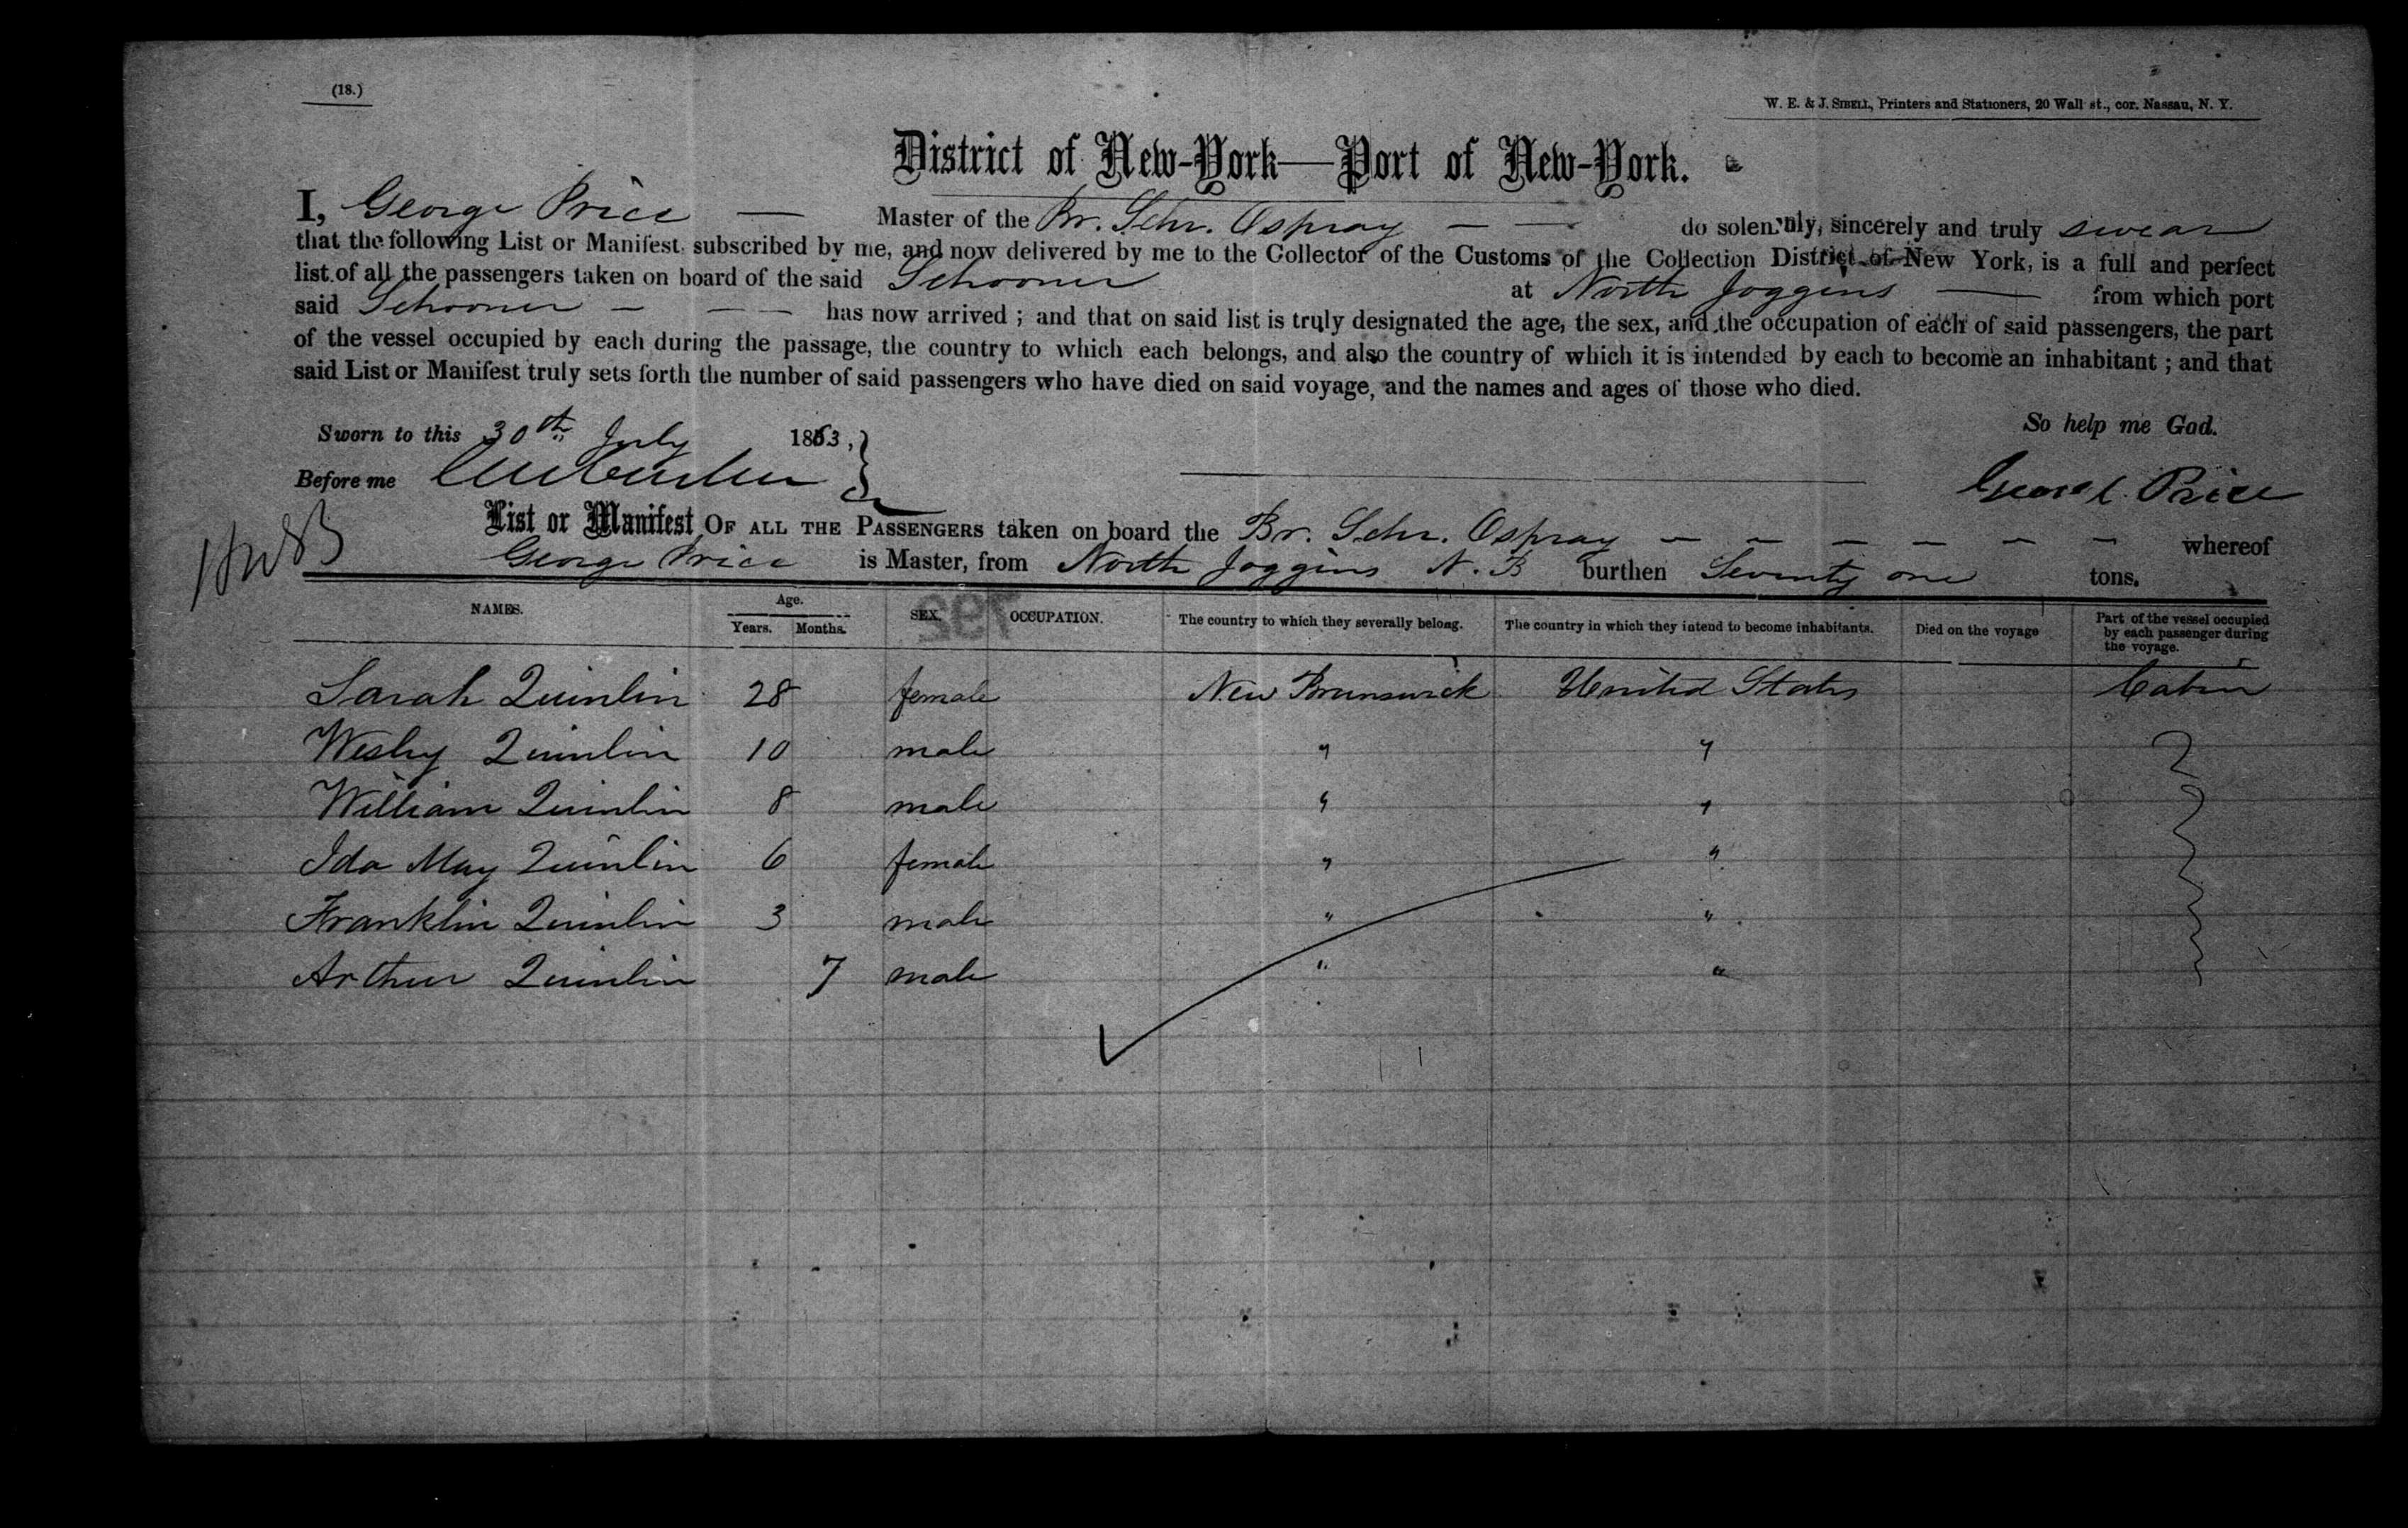 (18.)
W. E. & J. SIBELL, Printers and Stationers, 20 Wall st., cor. Nassau, N. Y.
District of New-York—Port of New-York.
I, George Price — Master of the Br. Schr. Ospray — — do solemnly, sincerely and truly swear
that the following List or Manifest, subscribed by me, and now delivered by me to the Collector of the Customs of the Collection District of New York, is a full and perfect
list of all the passengers taken on board of the said Schooner at North Joggins — from which port
said Schooner — — — has now arrived; and that on said list is truly designated the age, the sex, and the occupation of each of said passengers, the part
of the vessel occupied by each during the passage, the country to which each belongs, and also the country of which it is intended by each to become an inhabitant; and that
said List or Manifest truly sets forth the number of said passengers who have died on said voyage, and the names and ages of those who died.
So help me God.
Sworn to this 30th July 1863,
Before me
George Price
List or Manifest OF ALL THE PASSENGERS taken on board the Br. Schr. Ospray — — — — — — whereof
George Price is Master, from North Joggins N. B burthen Seventy one tons.
NAMES. Age. Years. Months. SEX. OCCUPATION. The country to which they severally belong. The country in which they intend to become inhabitants. Died on the voyage Part of the vessel occupied by each passenger during the voyage.
792
Sarah Quinlin 28 female New Brunswick United States Cabin
Wesley Quinlin 10 male " "
William Quinlin 8 male " "
Ida May Quinlin 6 female " "
Franklin Quinlin 3 male " "
Arthur Quinlin 7 male " "